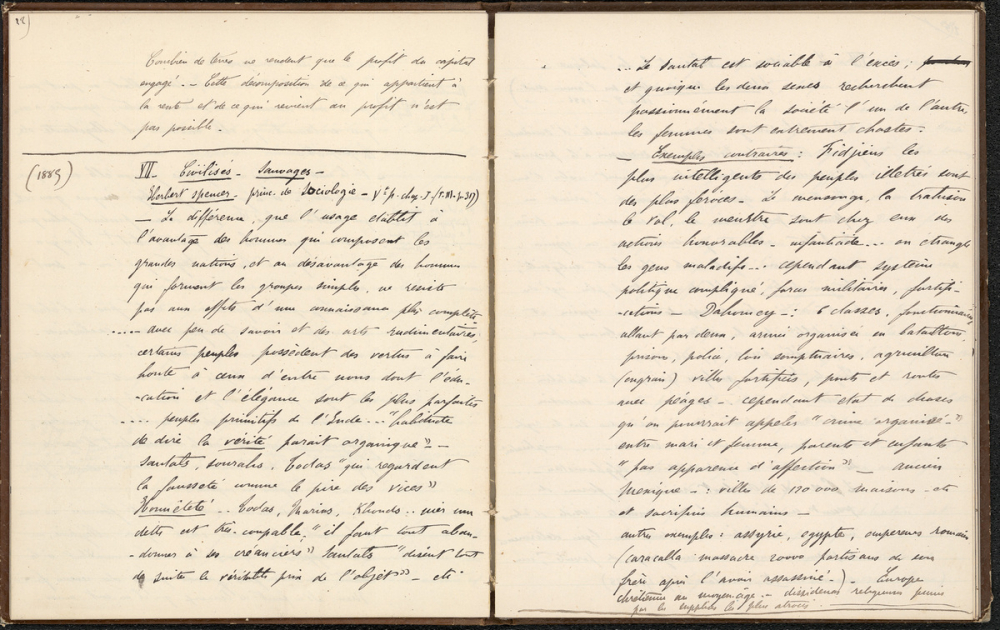 18)
Combien de terres ne rendent que le profit du capital
engagé. - Cette décomposition de ce qui appartient à
la rente et de ce qui revient au profit n'est
pas possible.
(1889)
VII - Civilisés - Sauvages -
Herbert Spencer - princ. de Sociologie -
- La différence, que l'usage établit à
l'avantage des hommes qui composent les
grandes nations, et au désavantage des hommes
qui forment les groupes simples, ne résulte
pas aux effets d'une connaissance plus complète
..... avec peu de savoir et des arts rudimentaires,
certains peuples possèdent des vertus à faire
honte à ceux d'entre nous dont l'édu-
-cation et l'élégance sont les plus parfaites
.... peuples primitifs de l'Inde ... "habitude
de dire la vérité parait organique" -
Santals, Sourahs, Todas "qui regardent
la fausseté comme le pire des vices"
Honnêteté .. Todas, Khonds .. nier une
dette est très-coupable, "il faut tout aban-
-donner à ses créanciers" Santals "disent tout
de suite le véritable prix de l'objet" - etc
... Le Santal est sociable à l'excès ;
et quoique les deux sexes recherchent
passionnément la société l'un de l'autre,
les femmes sont extrement chastes -
- Exemples contraires : Fidjiens les
plus intelligents des peuples illetrés sont
des plus féroces - Le mensonge, la trahison
le vol, le meurtre sont chez eux des
actions honorables - infanticide ... on étrangle
les gens maladifs -: cependant système
politique compliqué, forces militaires, fortifi-
-cations - Dahomey -: 6 classes, fonctionnaires
allant par deux, armée organisée en bataillons,
prison, police, lois somptuaires, agriculture
(engrais) villes fortifiées, ponts et routes
avec péages - cependant état de choses
qu'on pourrait appeler "crime organisé -"
entre mari et femme, parents et enfants
"pas apparence d'affection" - ancien
Mexique -: villes de 120 000 maisons - etc
et sacrifices humains -
autres exemples : assyrie, egypte, empereurs romains
(caracalla massacre 20000 partisans de son
frère après l'avoir assassiné -) - Europe
chrétienne au moyen-âge - dissidences religieuses punies
par les supplices les plus atroces